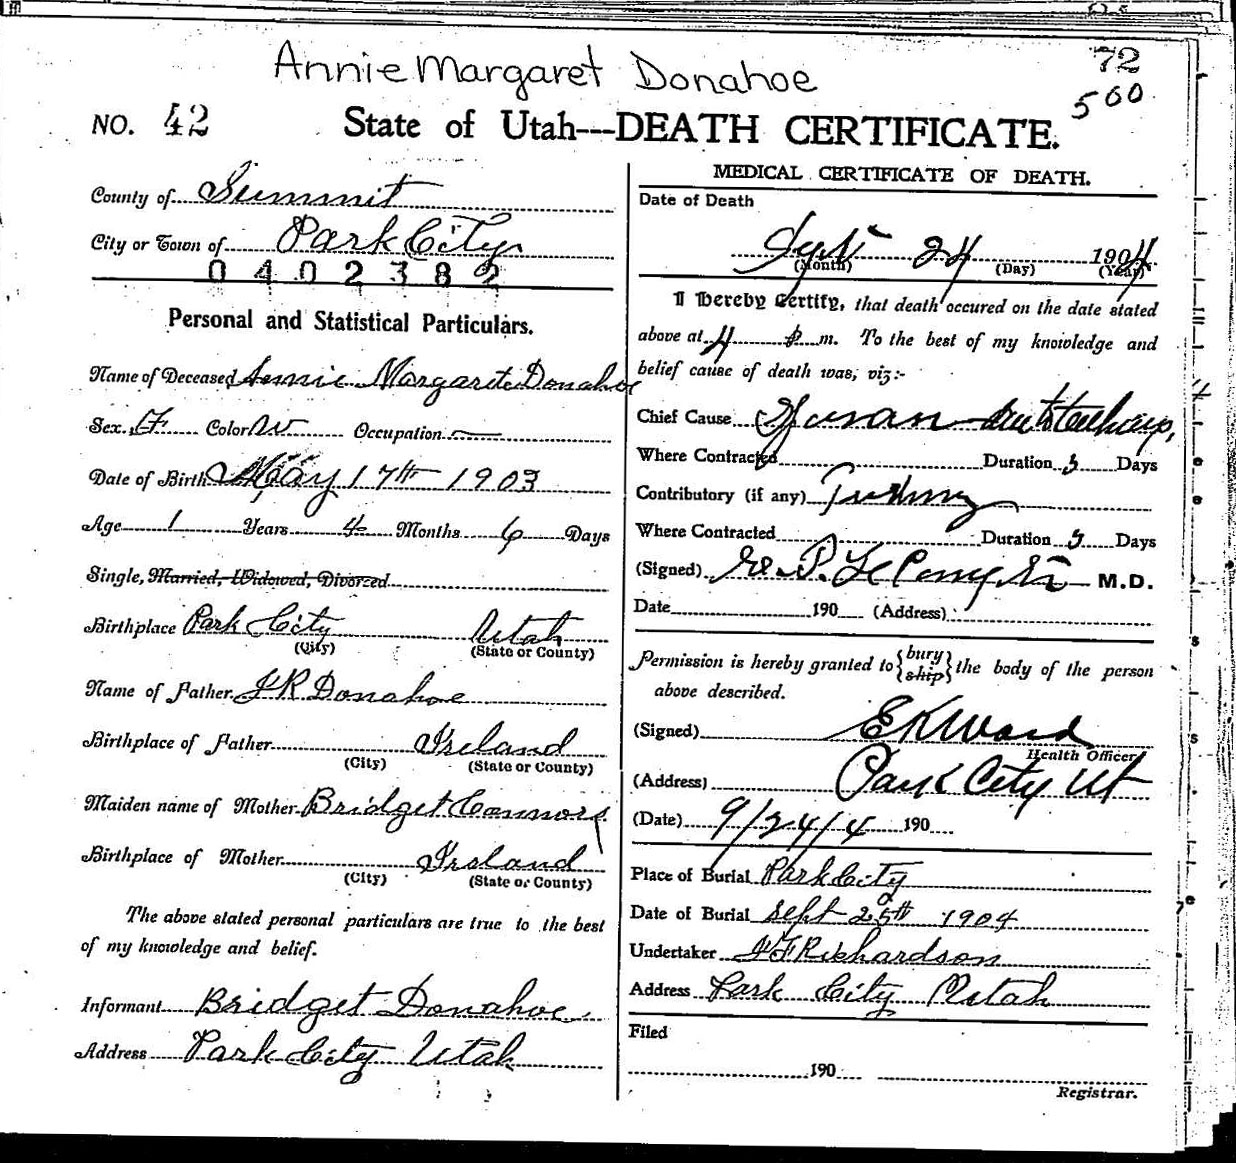 Annie Margaret Donahoe
72
500
NO. 42
State of Utah---DEATH CERTIFICATE.
County of Summit
City or Town of Park City
0402382
Personal and Statistical Particulars.
Name of Deceased Annie Margarite Donahoe
Sex F Color W Occupation —
Date of Birth May 17th 1903
Age 1 Years 4 Months 6 Days
Single, Married, Widowed, Divorced
Birthplace Park City Utah
(City) (State or County)
Name of Father Donahoe
Birthplace of Father Ireland
(City) (State or County)
Maiden name of Mother Bridget Connors
Birthplace of Mother Ireland
(City) (State or County)
The above stated personal particulars are true to the best
of my knowledge and belief.
Informant Bridget Donahoe
Address Park City Utah
MEDICAL CERTIFICATE OF DEATH.
Date of Death
Sept 24 1904
(Month) (Day) (Year)
I Hereby Certify, that death occured on the date stated
above at 4 p m. To the best of my knowledge and
belief cause of death was, viz:-
Chief Cause
Where Contracted Duration 3 Days
Contributory (if any)
Where Contracted Duration 3 Days
(Signed) M.D.
Date 190 (Address)
Permission is hereby granted to {bury ship} the body of the person
above described.
(Signed) E K Ward
Health Officer
(Address) Park City Ut
(Date) 9/24/4 190
Place of Burial Park City
Date of Burial Sept 25th 1904
Undertaker Richardson
Address Park City Utah
Filed
190
Registrar.